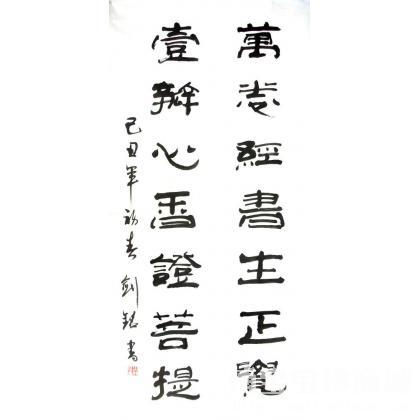 萬卷經書生正覺
壹瓣心香證菩提
己丑年初春 劍銘書